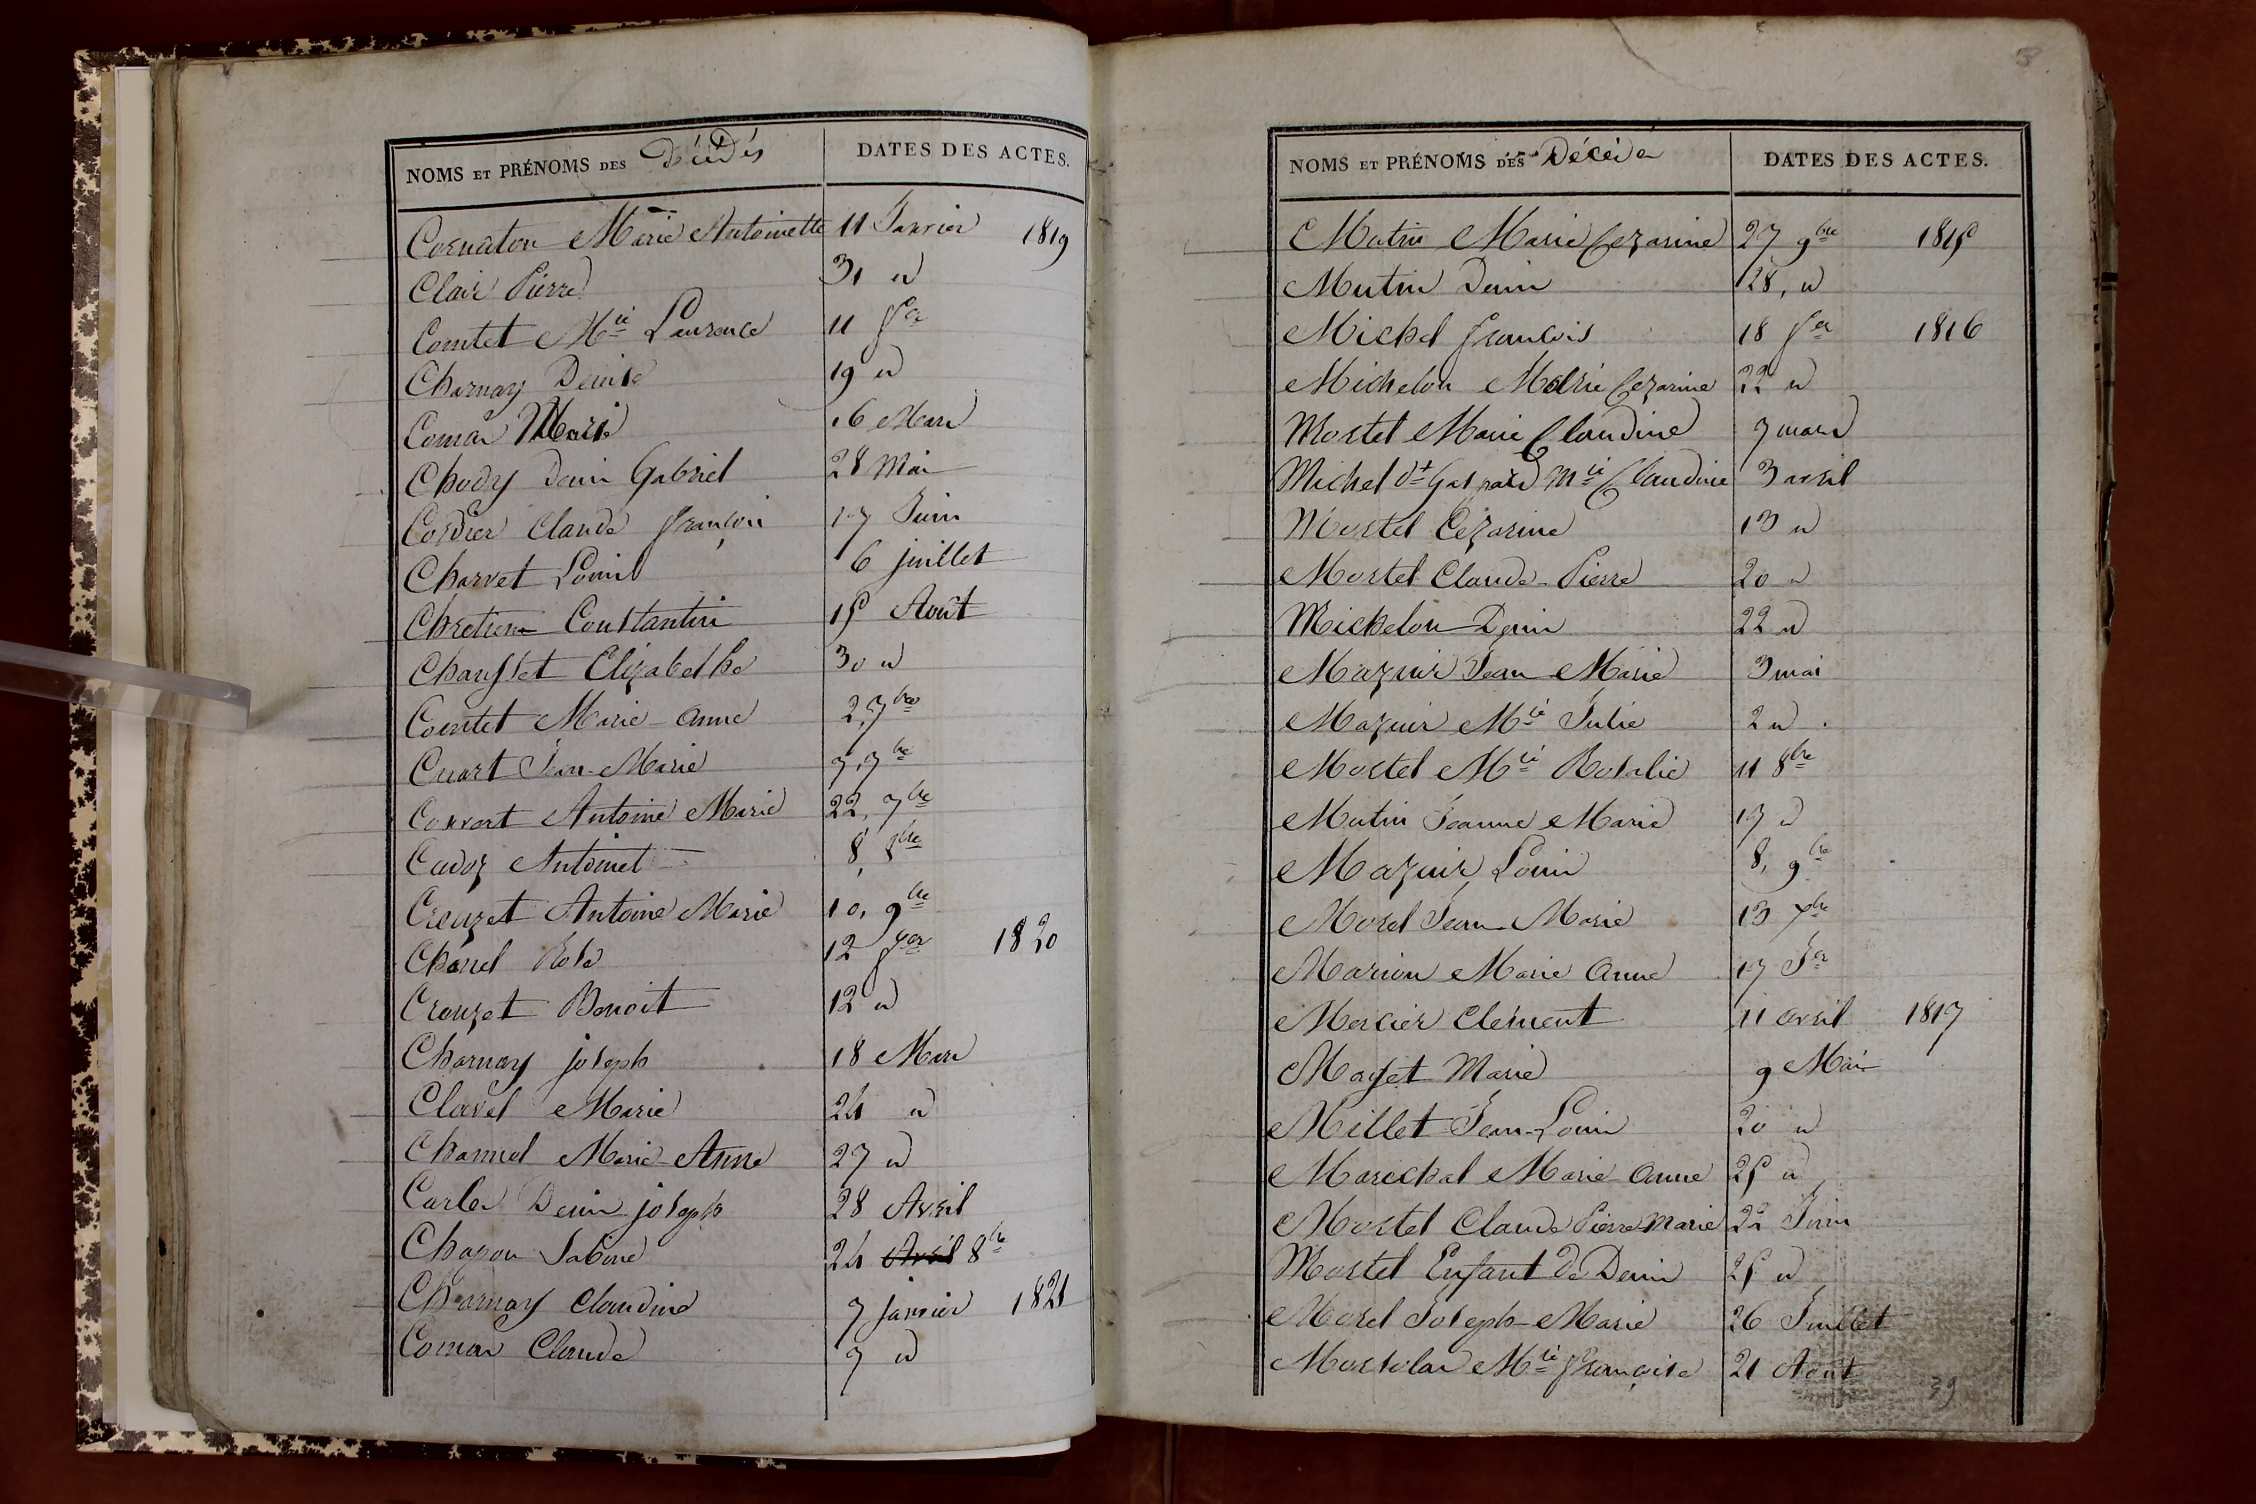 NOMS ET PRÉNOMS DES Décédés DATES DES ACTES.
Cornaton Marie Antoinette 11 Janvier 1819
Clair Pierre 31 id
Comtet Mie Laurence 11 fer
Charnay Denise 19 id
Comas Marie 16 Mars
Chody Denis Gabriel 28 Mai
Cordier Claude françois 17 Juin
Charvet Louis 6 juillet
Chretien Constantin 15 Août
Chausset Elizabethe 30 id
Comtet Marie anne 2, 7bre
Cuart Jean-Marie 7, 7bre
Convert Antoine Marie 22, 7bre
Cadoz Antoinet 8, 8bre
Crouzet Antoine Marie 10, 9bre
Chanel Rose 12 fer 1820
Crouzet Benoit 12 id
Charnay joseph 18 Mars
Clavel Marie 24 id
Chanuel Marie-Anne 27 id
Carler Denis joseph 28 Avril
Chapon Sabine 24 Avril 8bre
Charnay Claudine 7 janvier 1821
Comas Claude 7 id
3
NOMS ET PRÉNOMS DES Décédés DATES DES ACTES.
Mutin Marie Cezarine 27 9bre 1815
Mutin Denis 28, id
Michel françois 18 fer 1816
Michelon Marie Cezarine 22 id
Mortel Marie Claudine 7 mars
Michel dt Gaspard Mie Claudine 3 avril
Mortel Cézarine 13 id
Mortel Claude-Pierre 20 id
Michelon Denis 22 id
Mazuir Jean Marie 3 mai
Mazuir Mie Julie 2 id
Mortel Mie Rosalie 11 8bre
Mutin Jeanne Marie 17 id
Mazuir Louis 8, 9bre
Morel Jean-Marie 13 xbre
Marion Marie Anne 17 Jer
Mercier Clément 11 avril 1817
Mayet Marie 9 Mai
Millet Jean-Louis 20 id
Marechal Marie anne 25 id
Mortel Claude Pierre Marie 22 Juin
Mortel Enfant de Denis 25 id
Morel Joseph-Marie 26 Juillet
Mie françoise 21 Août
39